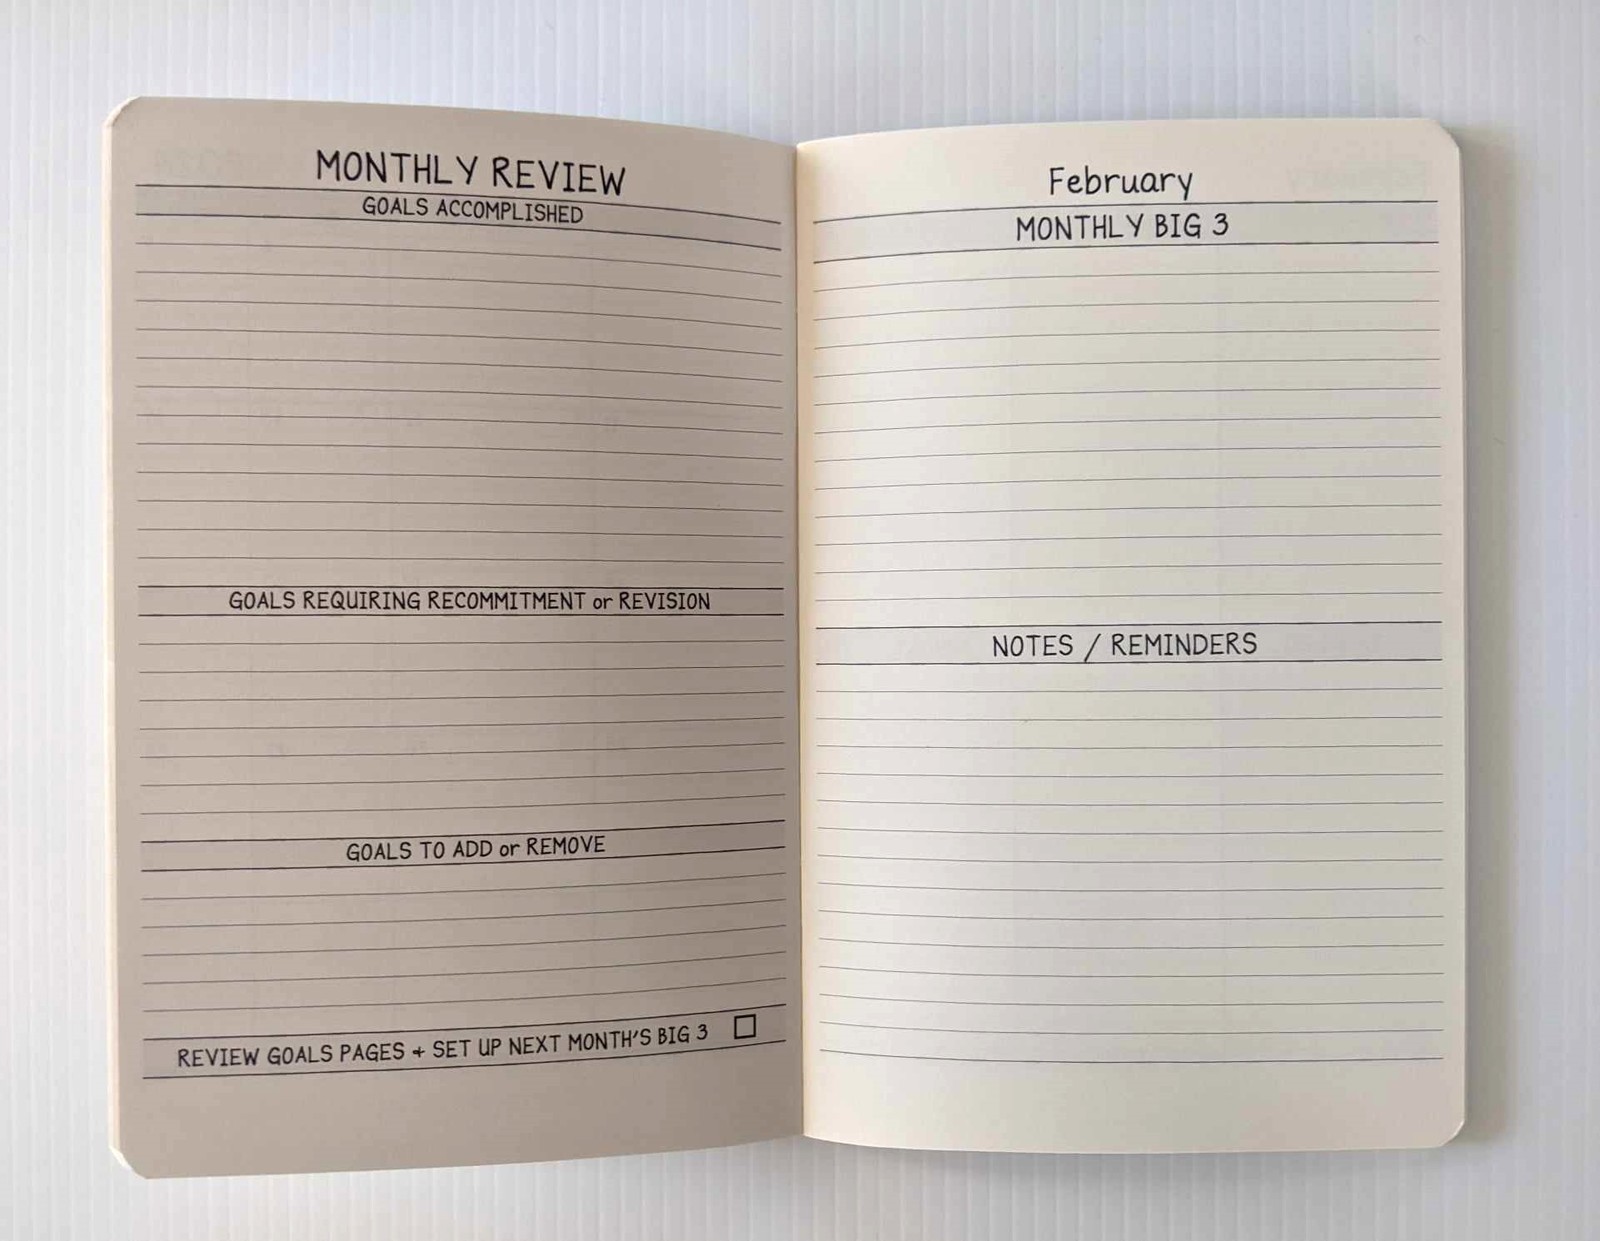 MONTHLY REVIEW
GOALS ACCOMPLISHED
GOALS REQUIRING RECOMMITMENT or REVISION
GOALS TO ADD or REMOVE
REVIEW GOALS PAGES + SET UP NEXT MONTH'S BIG 3
February
MONTHLY BIG 3
NOTES / REMINDERS